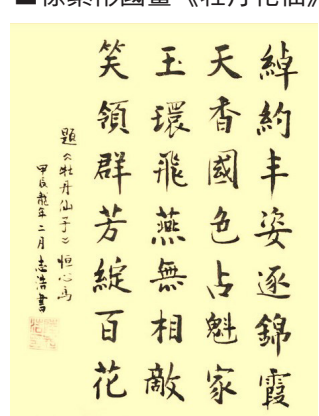 綽約丰姿逐錦霞
天香國色占魁家
玉環飛燕無相敵
笑領群芳綻百花
題《牡丹仙子》恒心馬
甲辰龍年二月志浩書